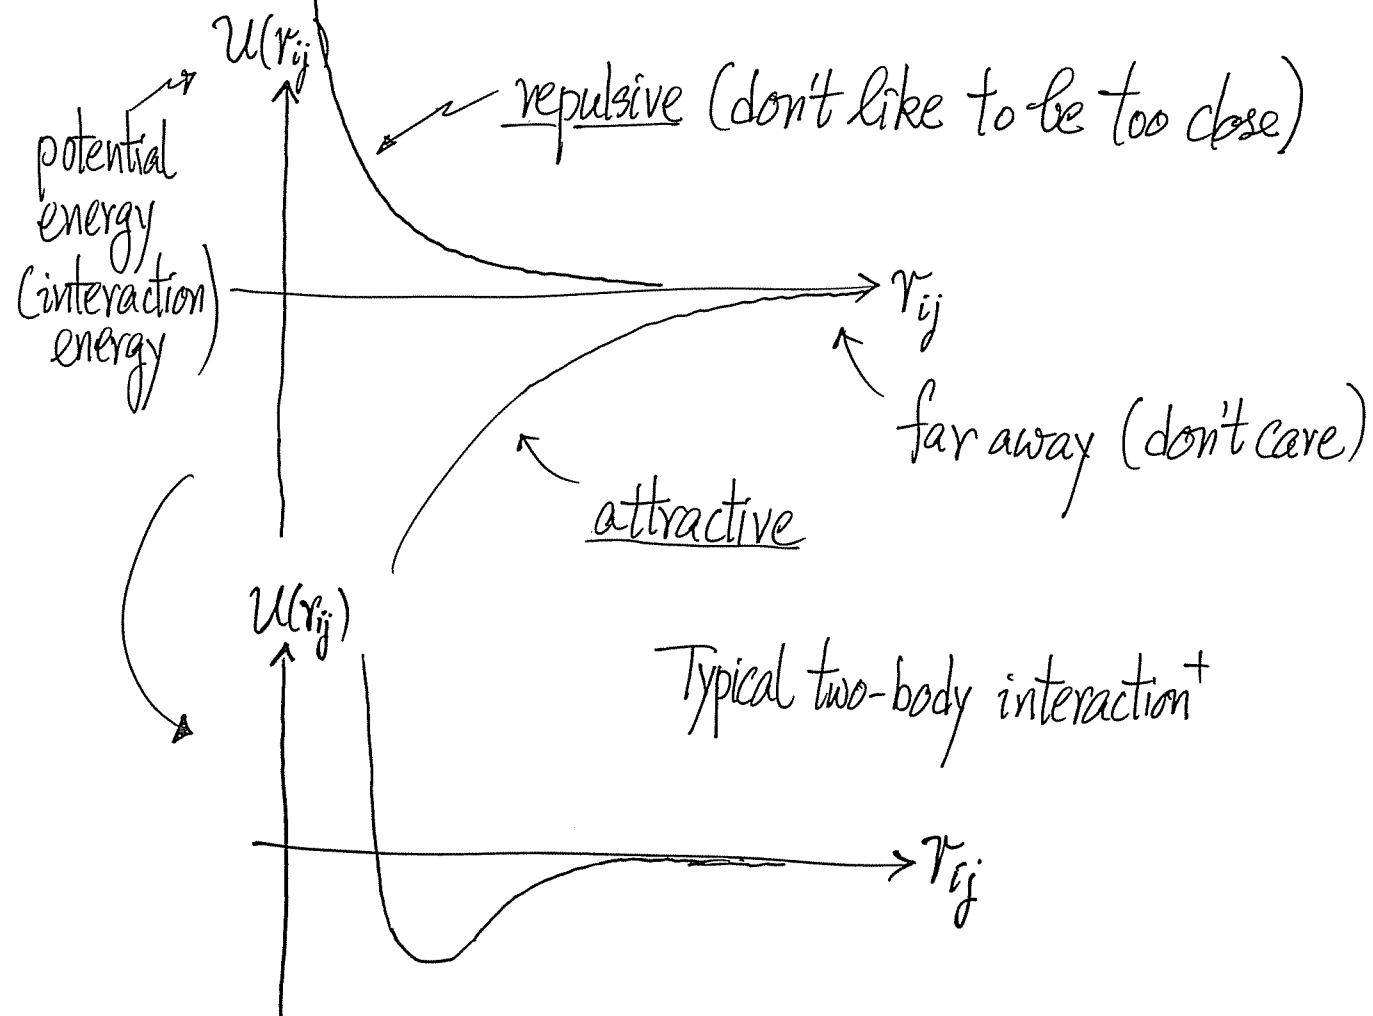 U(rij
repulsive (don't like to be too close)
potential
energy
(interaction)
energy
rij
far away (don't care)
attractive
U(rij)
Typical two-body interaction+
rij